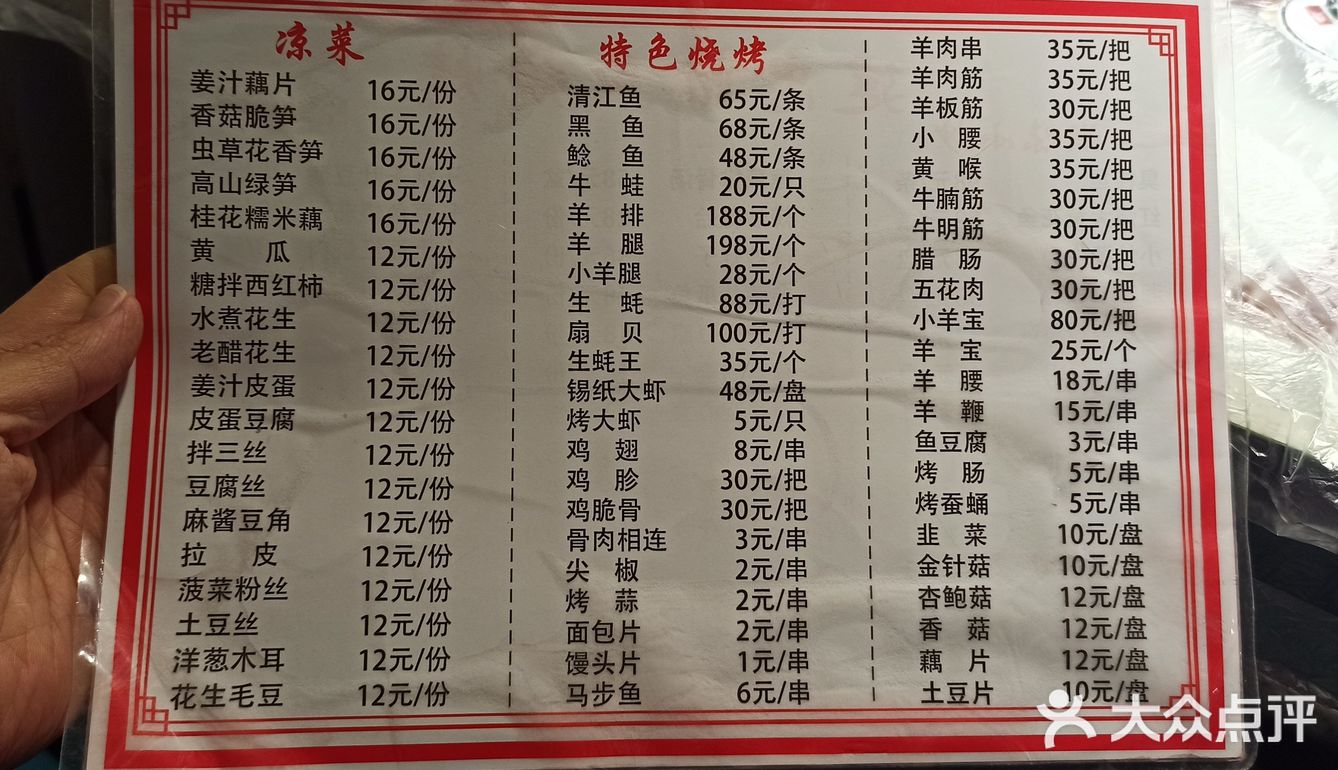 凉菜
姜汁藕片 16元/份
香菇脆笋 16元/份
虫草花香笋 16元/份
高山绿笋 16元/份
桂花糯米藕 16元/份
黄 瓜 12元/份
糖拌西红柿 12元/份
水煮花生 12元/份
老醋花生 12元/份
姜汁皮蛋 12元/份
皮蛋豆腐 12元/份
拌三丝 12元/份
豆腐丝 12元/份
麻酱豆角 12元/份
拉 皮 12元/份
菠菜粉丝 12元/份
土豆丝 12元/份
洋葱木耳 12元/份
花生毛豆 12元/份
特色烧烤
清江鱼 65元/条
黑 鱼 68元/条
鲶 鱼 48元/条
牛 蛙 20元/只
羊 排 188元/个
羊 腿 198元/个
小羊腿 28元/个
生 蚝 88元/打
扇 贝 100元/打
生蚝王 35元/个
锡纸大虾 48元/盘
烤大虾 5元/只
鸡 翅 8元/串
鸡 胗 30元/把
鸡脆骨 30元/把
骨肉相连 3元/串
尖 椒 2元/串
烤 蒜 2元/串
面包片 2元/串
馒头片 1元/串
马步鱼 6元/串
羊肉串 35元/把
羊肉筋 35元/把
羊板筋 30元/把
小 腰 35元/把
黄 喉 35元/把
牛腩筋 30元/把
牛明筋 30元/把
腊 肠 30元/把
五花肉 30元/把
小羊宝 80元/把
羊 宝 25元/个
羊 腰 18元/串
羊 鞭 15元/串
鱼豆腐 3元/串
烤 肠 5元/串
烤蚕蛹 5元/串
韭 菜 10元/盘
金针菇 10元/盘
杏鲍菇 12元/盘
香 菇 12元/盘
藕 片 12元/盘
土豆片 10元/盘
大众点评